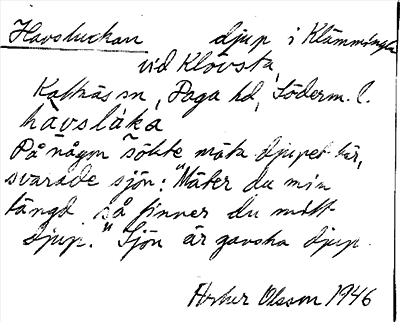 Havsluckan djup i Klämmingen
vid Klövsta,
Kattnäs sn, Daga hd, Söderm. l.
havslåka
På någon sökte mäta djupet här,
svarade sjön: "Mäter du min
längd så finner du mitt
djup." Sjön är ganska djup.
Olsson 1946